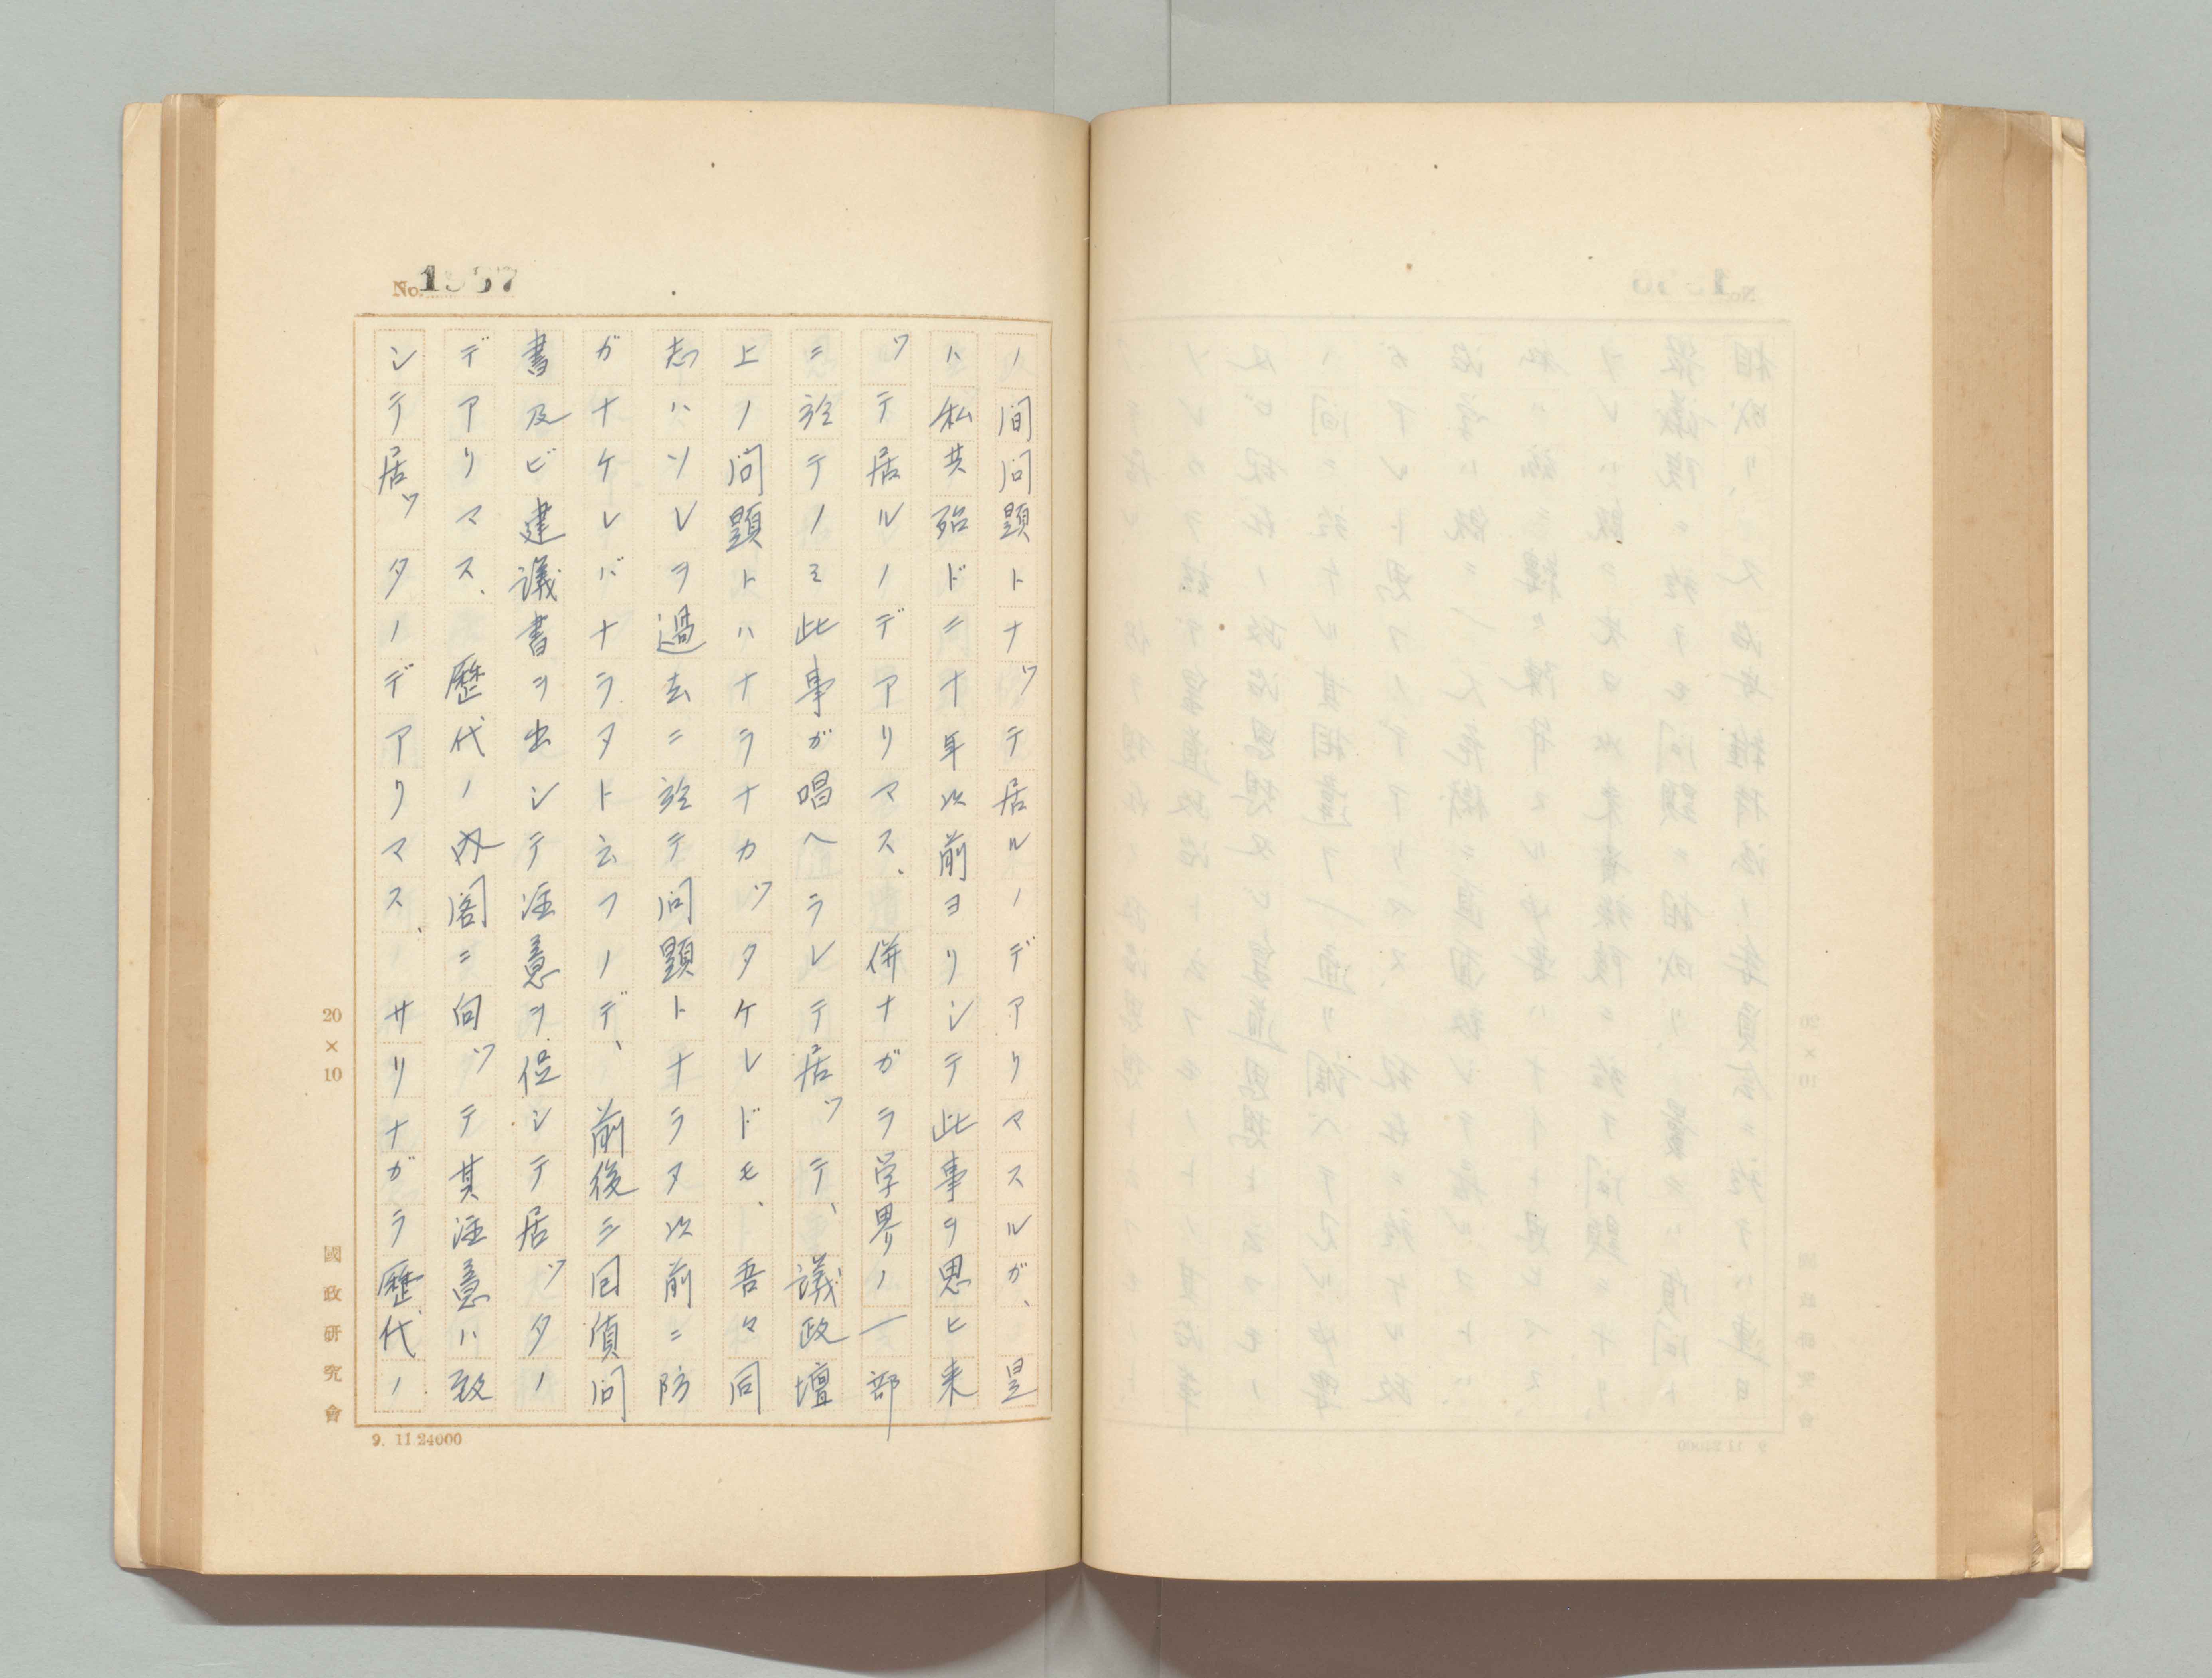 No. 1937
ノ間問題トナツテ居ルノデアリマスルガ、是
ハ私共殆ドニ十年以前ヨリシテ此事ヲ思ヒ来
ツテ居ルノデアリマス、併ナガラ学界ノ一部
ニ於テノミ此事ガ唱ヘラレテ居ツテ、議政壇
上ノ問題トハナラナカツタケレドモ、吾々同
志ハソレヲ過去ニ於テ問題トナラヌ以前ニ防
ガナケレバナラヌト云フノデ、前後三回質問
書及ビ建議書ヲ出シテ注意ヲ促シテ居ツタノ
デアリマス、歴代ノ内閣ニ向ツテ其注意ハ致
シテ居ツタノデアリマス、サリナガラ歴代ノ
20×10
國政研究會
9. 11 24000